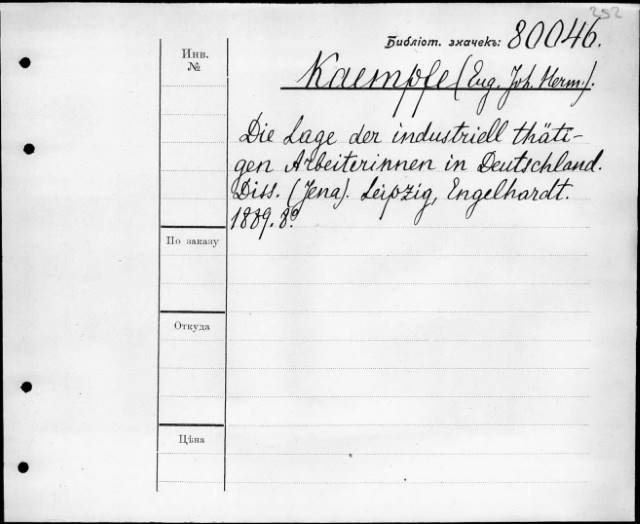 252
Библіот. значекъ: 80046.
Инв.
№
Kaempfe (Eug. Joh. Herm.).
Die Lage der industriell thäti-
gen Arbeiterinnen in Deutschland.
Diss. (Jena). Leipzig, Engelhardt.
1889. 8º
По заказу
Откуда
Цѣна